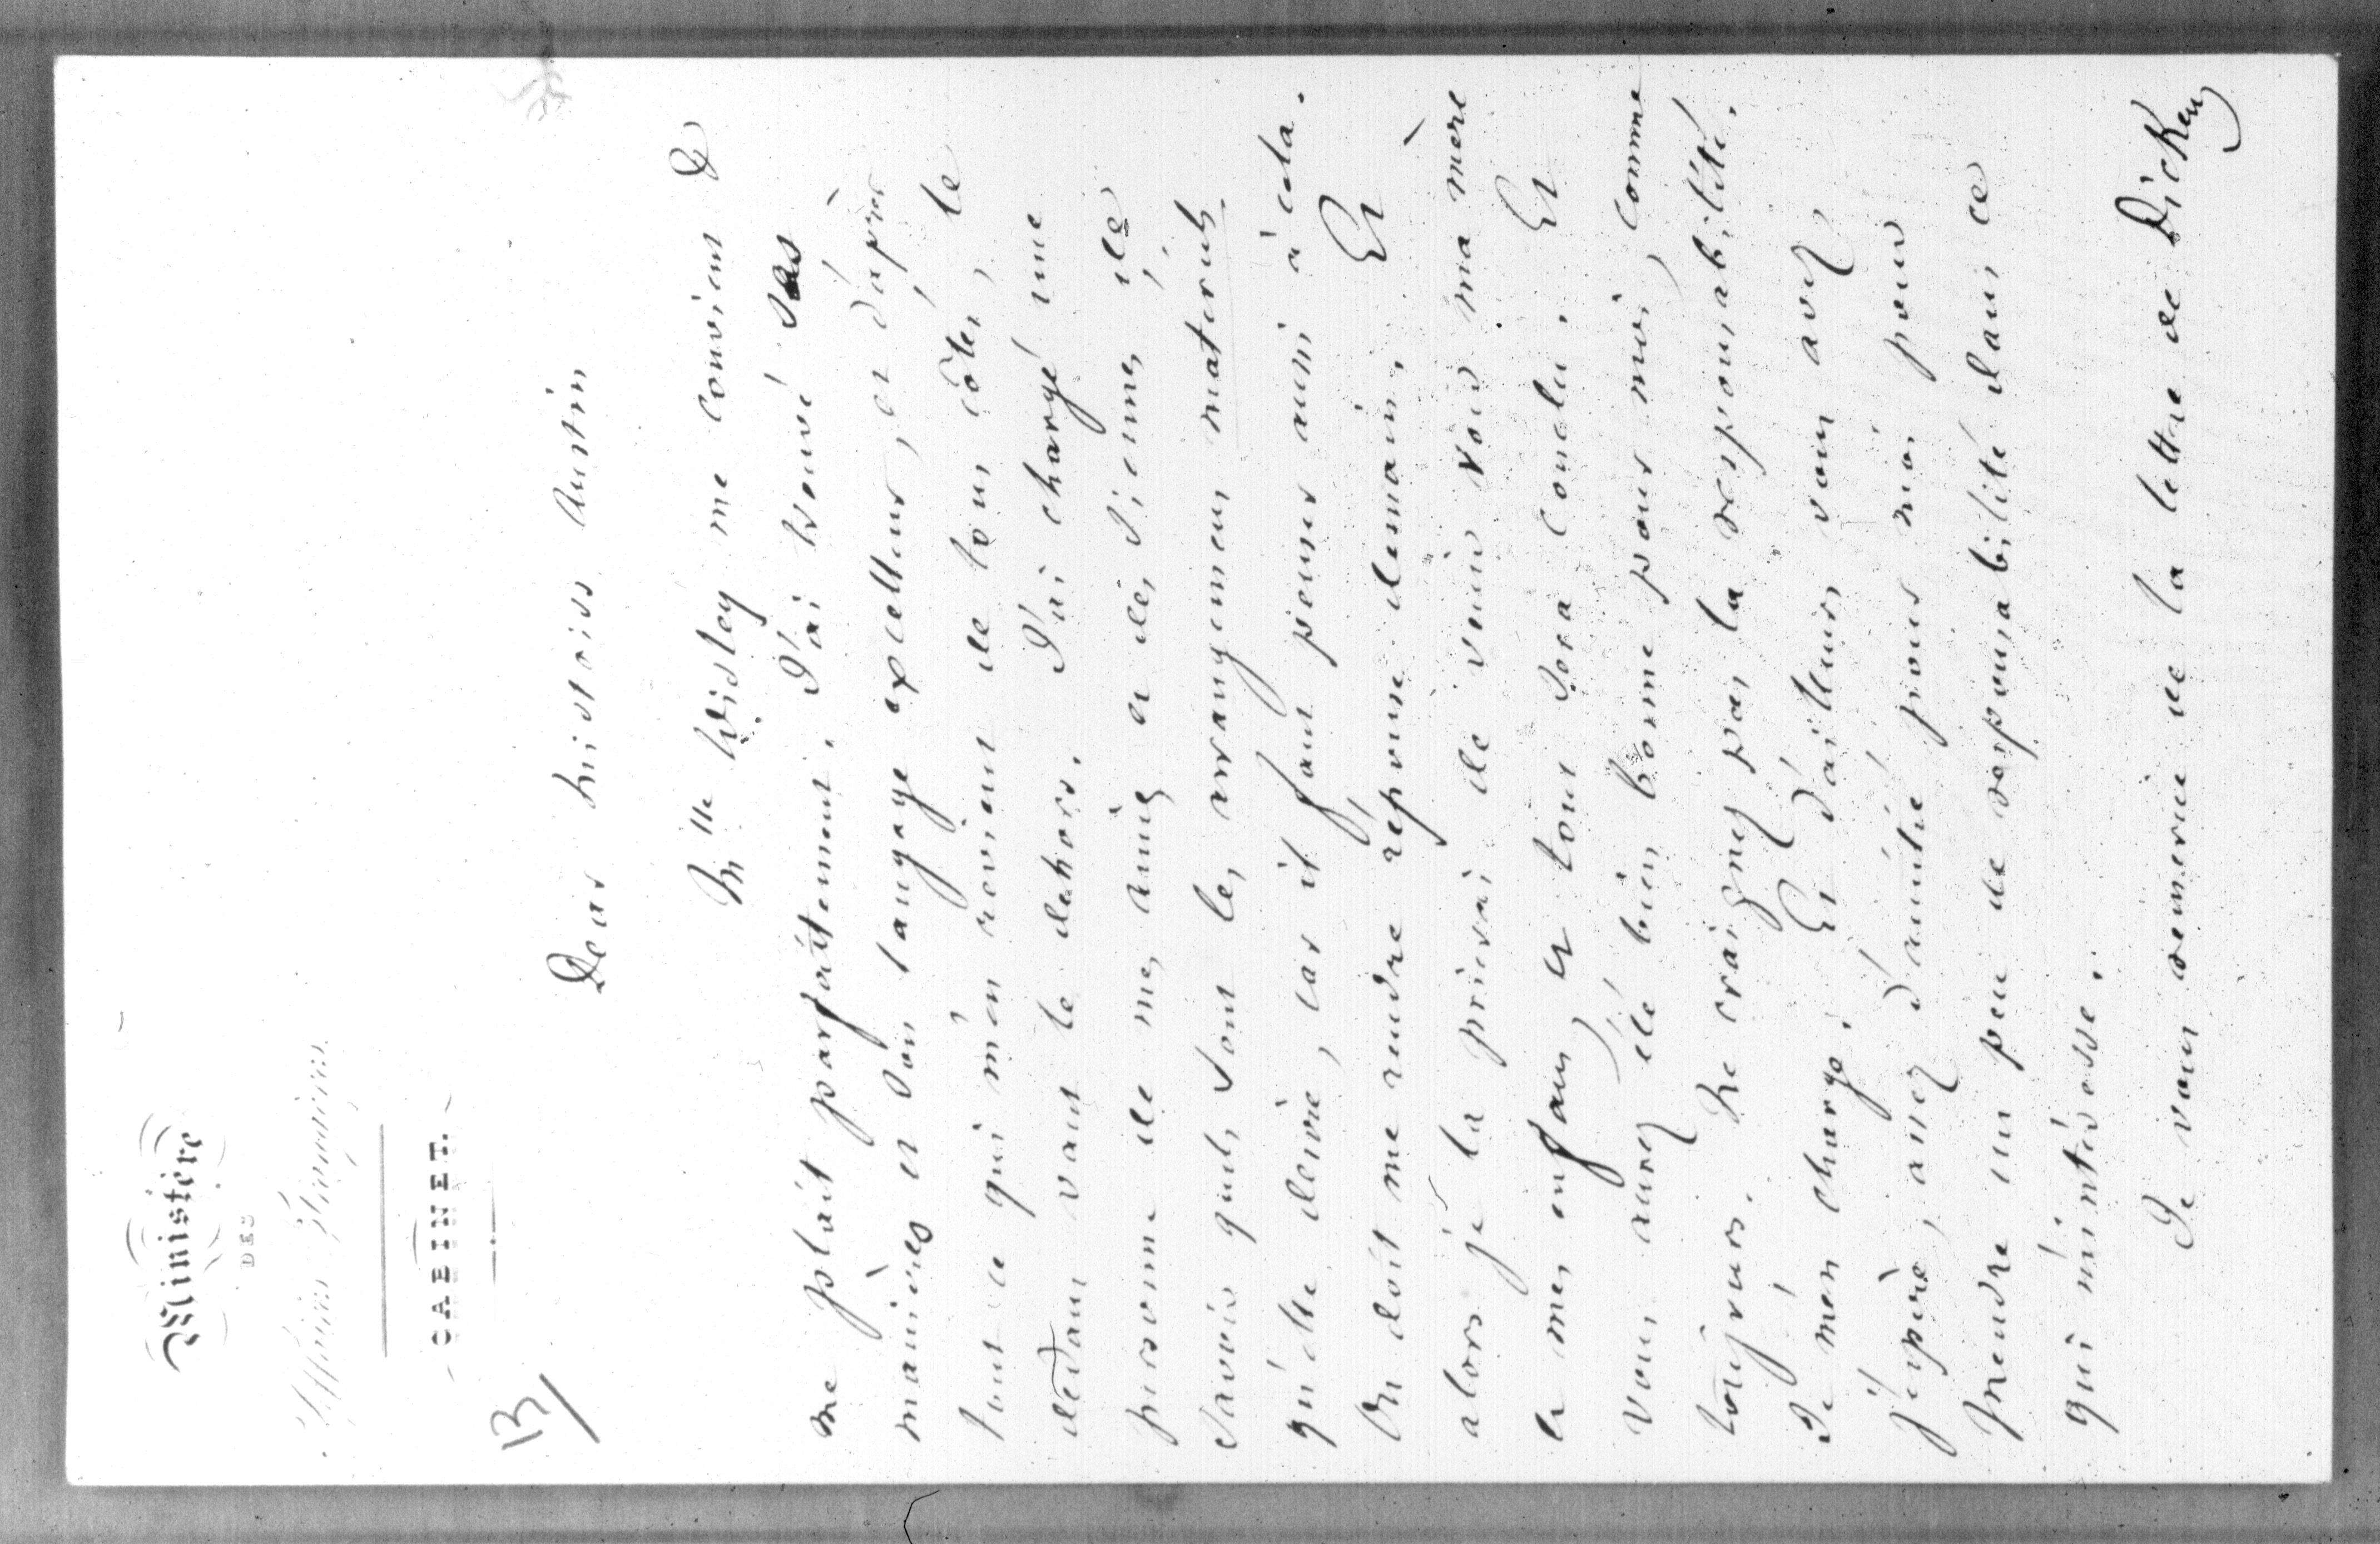 Ministère
DES
Affaires Étrangères
CABINET.
13/
Dear Mistriss Austin
Mlle Wisley me convient &
me plait parfaitement. J'ai trouvé ses
manières et son langage excellens, et d'après
tout ce qui m'en revient de tous côtés, le
dedans vaut le dehors. J'ai chargé une
personne de mes amies et des siennes, de
savoir quels sont les arrangemens materiels
qu'elle desire, car il faut penser aussi à cela.
On doit me rendre réponse demain. Et
alors je la prierai de venir voir ma mère
et mes enfans, et tout sera conclu. Et
vous aurez été bien bonne pour moi, comme
toujours. Ne craignez pas la responsabilité.
Je m'en charge. Et d'ailleurs vous avez,
j'espère, assez d'amitié pour moi pour
prendre un peu de responsabilité dans ce
qui m'intéresse.
Je vous remercie de la lettre de Dickens